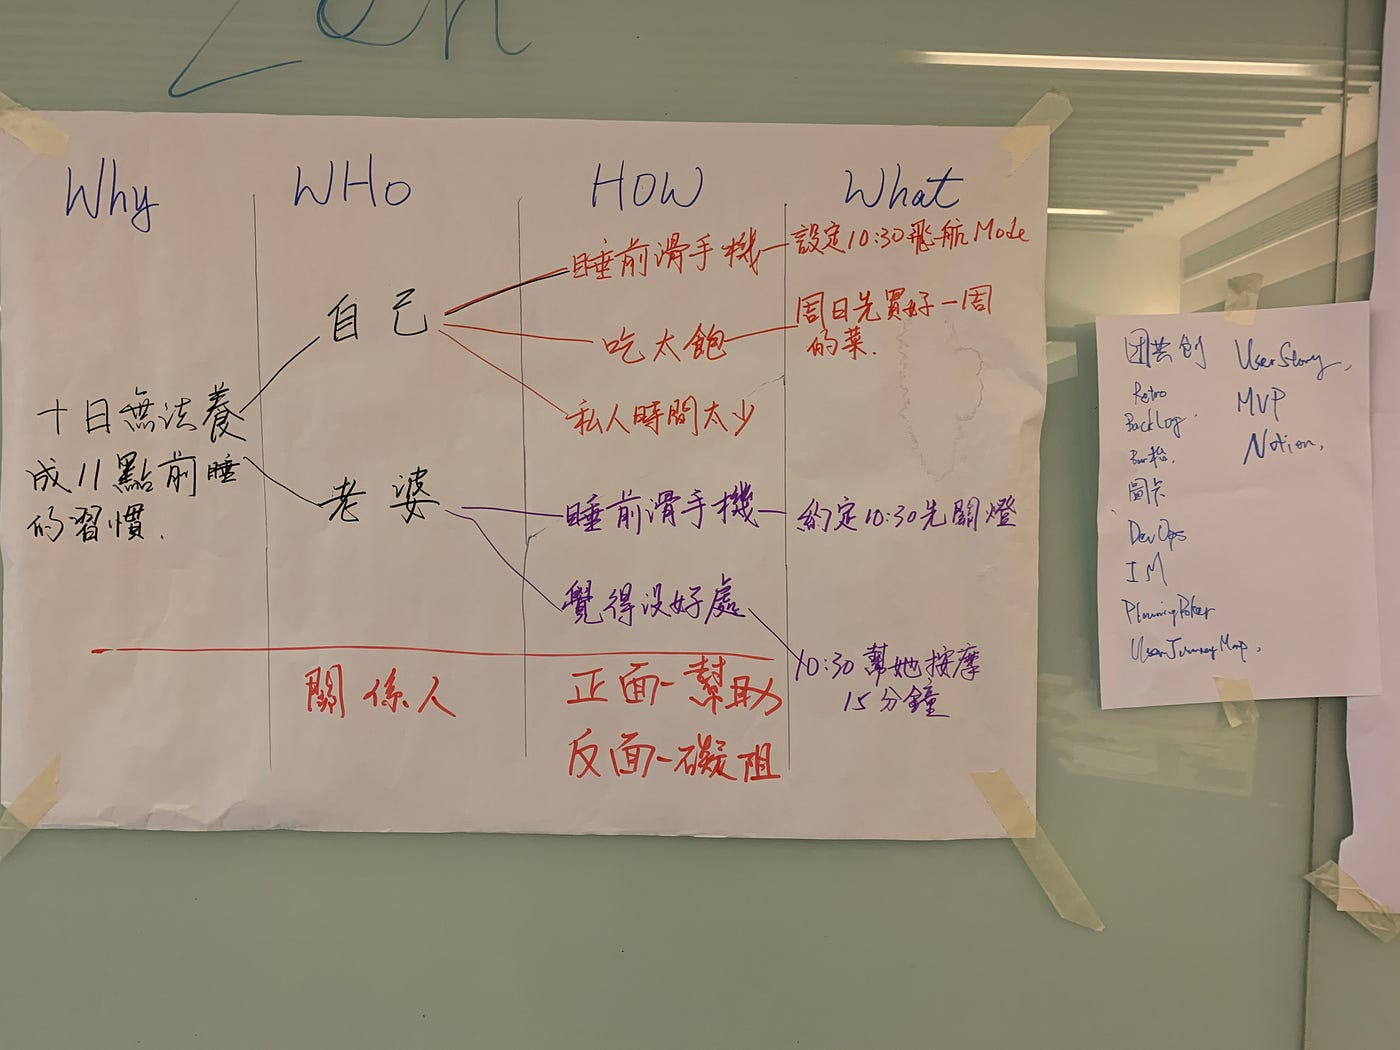 Zen
Why
WHO
HOW
What
十日無法養
成11點前睡
的習慣.
自己
老婆
睡前滑手機
吃太飽
私人時間太少
睡前滑手機
覺得沒好處
設定10:30飛航Mode
周日先買好一周
的菜.
約定10:30先關燈
10:30幫她按摩
15分鐘
關係人
正面-幫助
反面-礙阻
团共創
Retro
Backlog
圖卡
DevOps
IM
PlanningPoker
UserJourneyMap,
UserStory,
MVP
Notion,